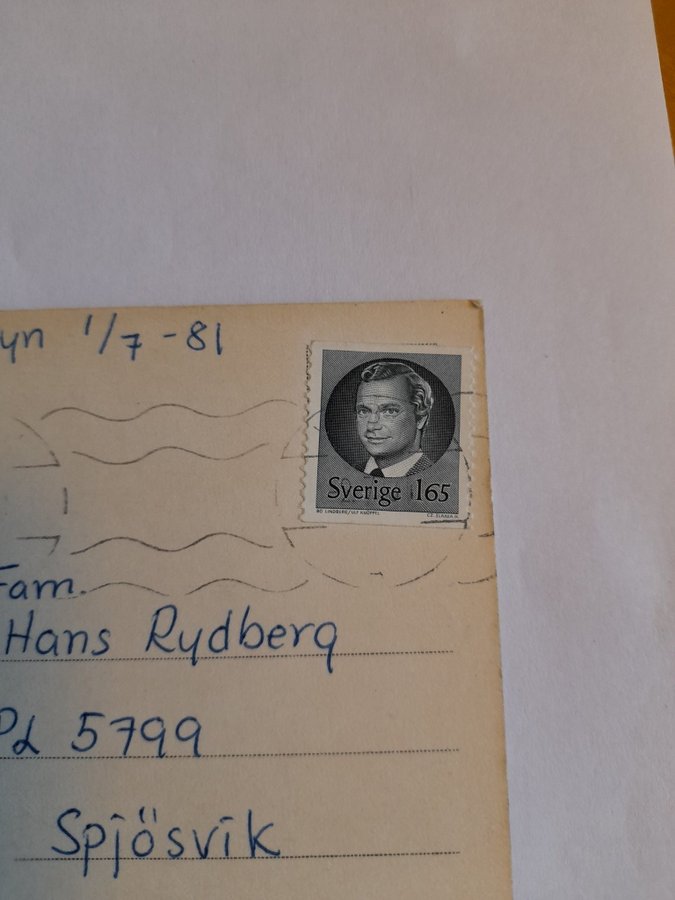 yn 1/7 -81
Sverige 165
BO LINDBERG/ULF KNÖPPEL
CZ. SLANIA SC.
Fam.
Hans Rydberg
Pl 5799
Spjösvik